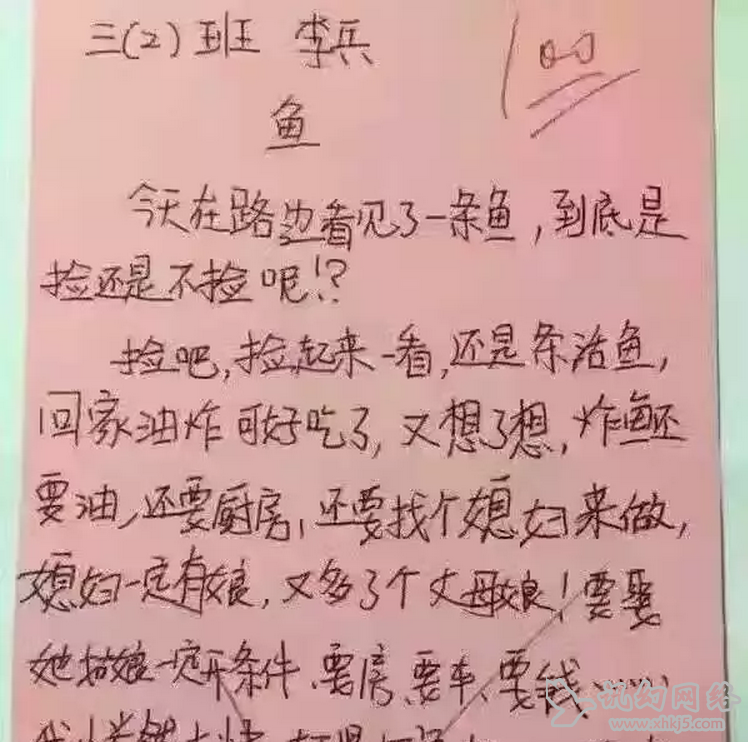 三(2)班 李兵
100
鱼
今天在路边看见了一条鱼,到底是
捡还是不捡呢!?
捡吧,捡起来一看,还是条活鱼,
回家油炸可好吃了,又想了想,炸鱼还
要油,还要厨房,还要找个媳妇来做,
媳妇一定有娘,又多了个丈母娘!要娶
她姑娘一定开条件、要房、要车、要钱……
www.xhkj5.com